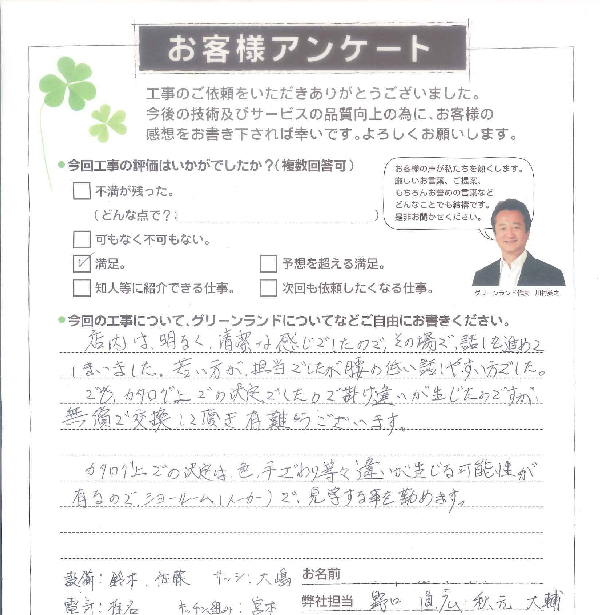 お客様アンケート
工事のご依頼をいただきありがとうございました。
今後の技術及びサービスの品質向上の為に、お客様の
感想をお書き下されば幸いです。よろしくお願いします。
今回工事の評価はいかがでしたか?(複数回答可)
不満が残った。
(どんな点で?: )
可もなく不可もない。
満足。
予想を超える満足。
知人等に紹介できる仕事。
次回も依頼したくなる仕事。
お客様の声が私たちを動くします。
厳しいお言葉、ご提案、
もちろんお誉めの言葉など
どんなことでも結構です。
是非お聞かせください。
グリーンランド代表
今回の工事について、グリーンランドについてなどご自由にお書きください。
店内は、明るく、清潔な感じでしたので、その場で、話しを進めて
しまいました。若い方が、担当でしたが腰の低い話しやすい方でした。
カタログ上での決定でしたので掛け違いが生じたのですが、
無償で交換して頂き有難うございます。
カタログ上での決定は、色、手ざわり等々違いが生じる可能性が
有るので、ショールーム(メーカー)で、見学する事を勧めます。
設備: 鈴木、佐藤 サッシ: 大嶋
お名前
電気: 椎名 キッチン組み: 宮本
弊社担当 野口 直広、秋元 大輔